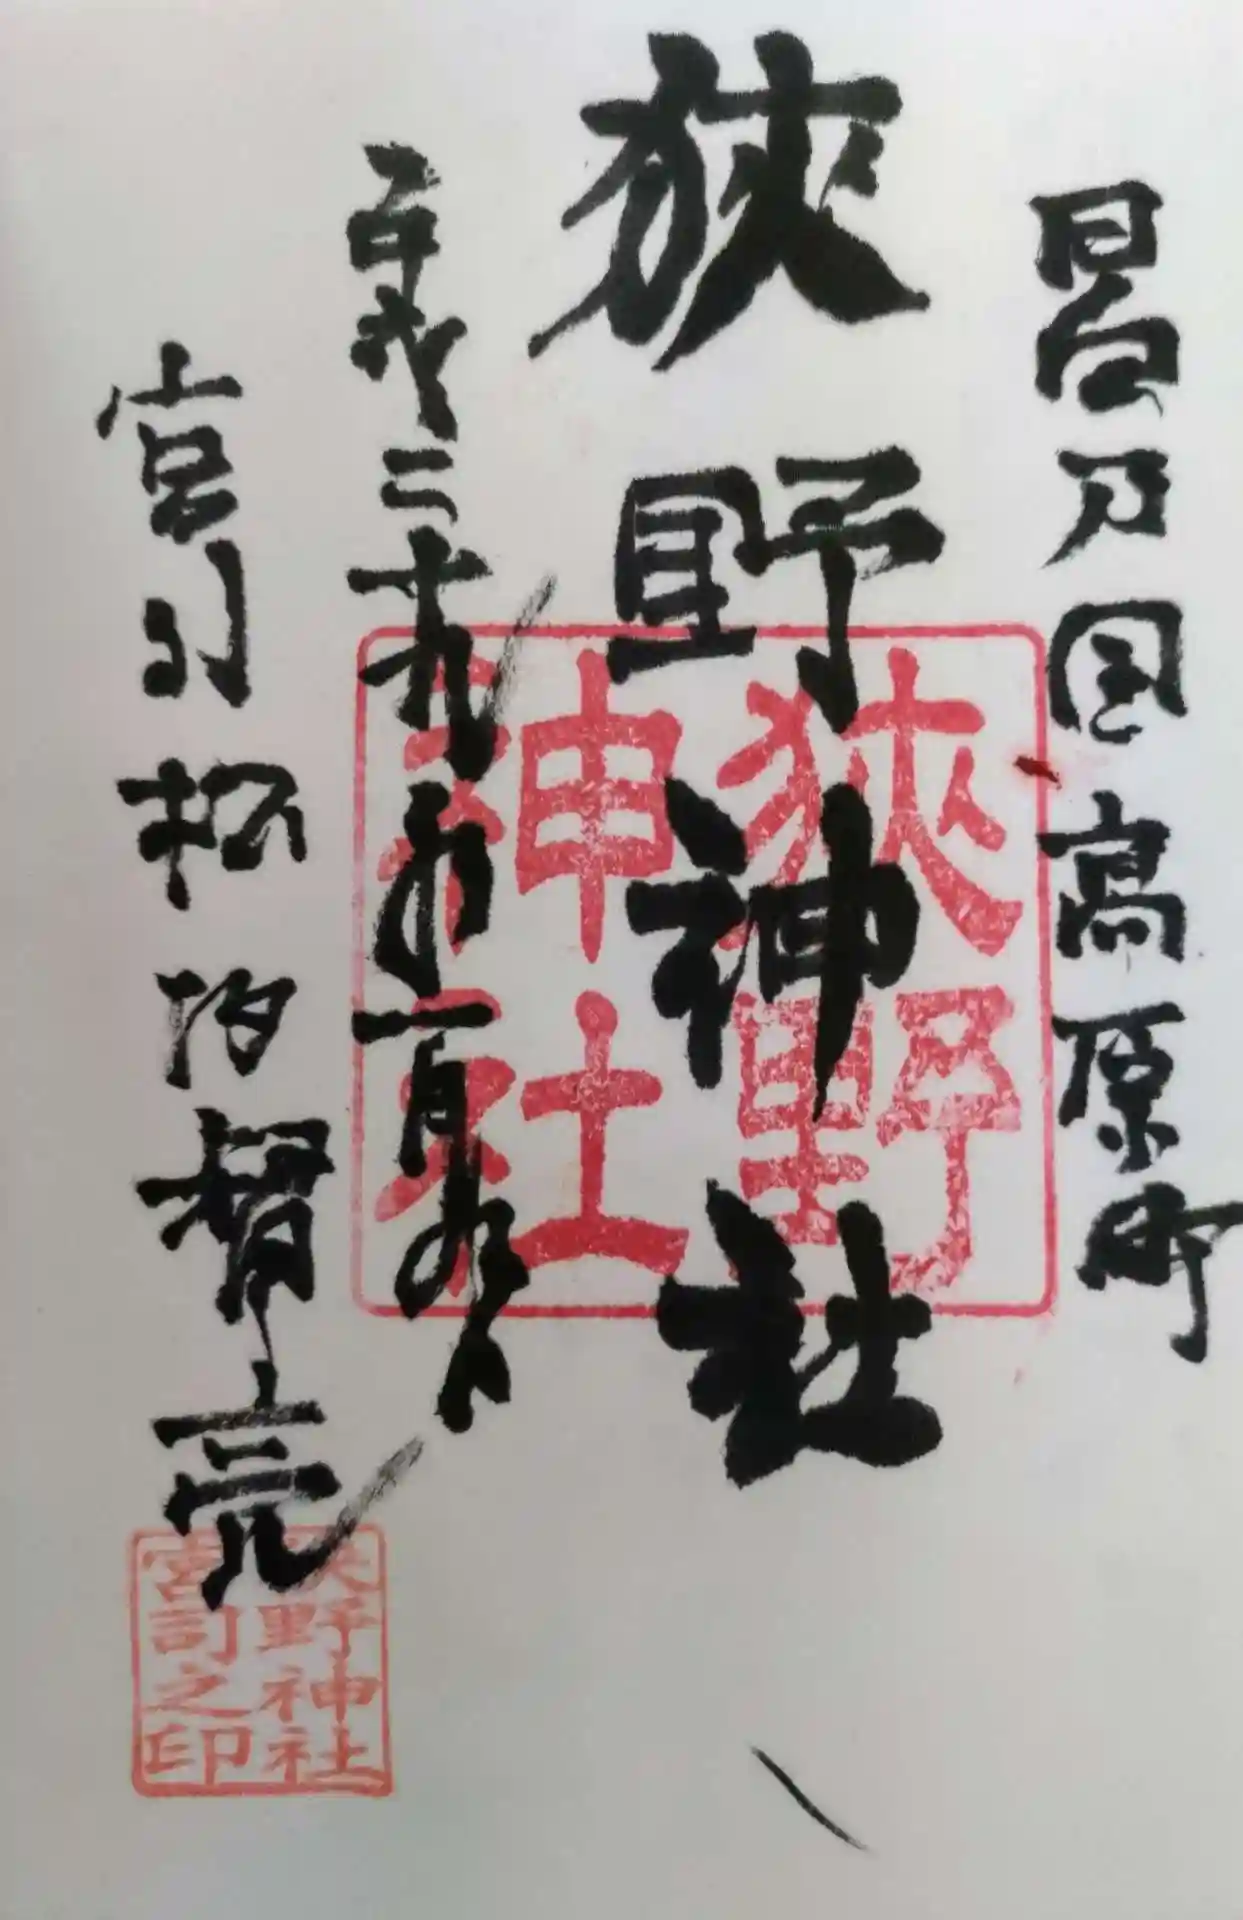 日向乃国高原町
狭野神社
狭野
神社
平成二十九年一月九日
宮司松坂督亮
狭野神社
宮司之印